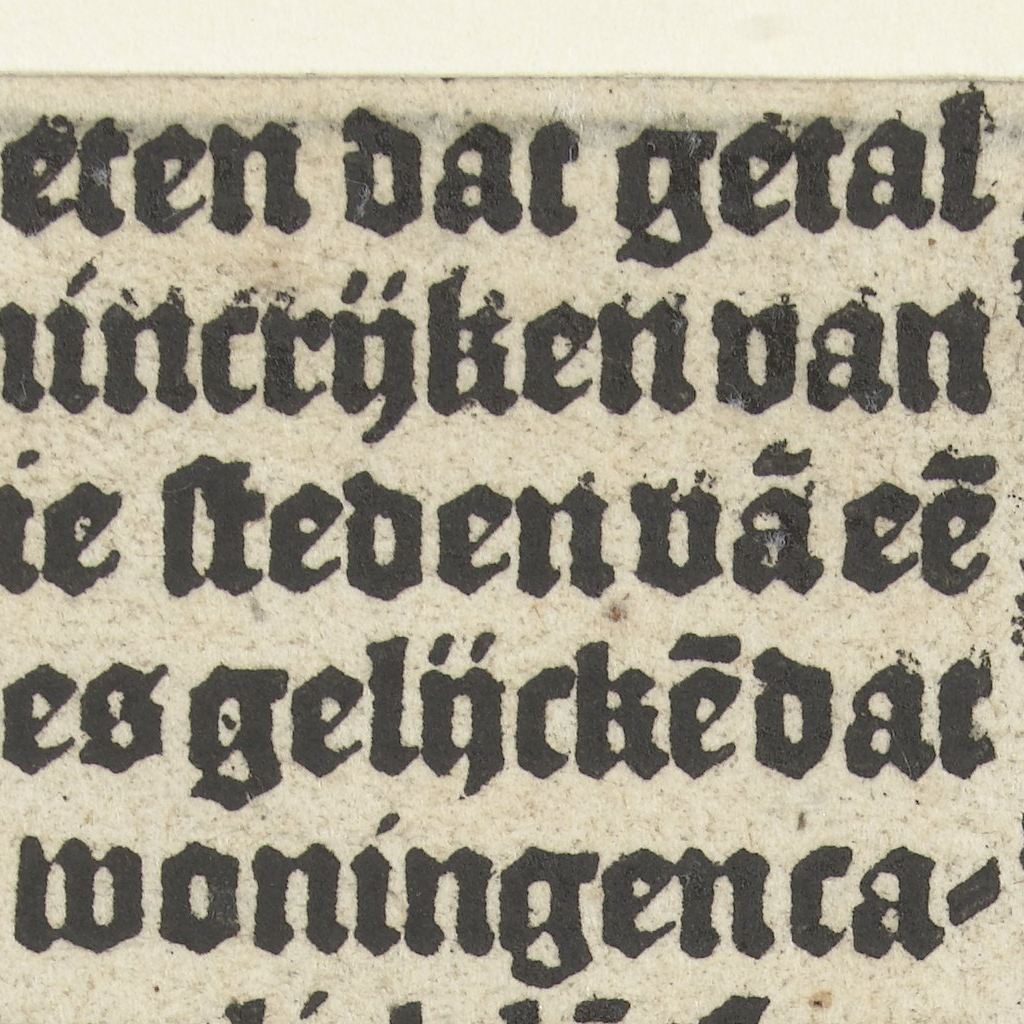 eten dat getal
nincrijken van
ie steden vā eē
es gelijckē dat
woningen ca-